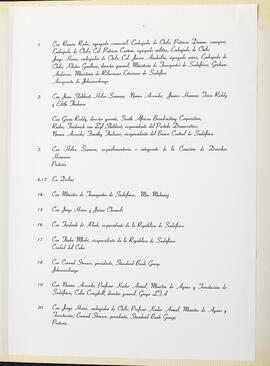 1 Con Román Rocha, agregado comercial, Embajada de Chile; Patricio Damm, consejero,
Embajada de Chile; Col. Patricio Cartoni, agregado militar, Embajada de Chile;
Jorge Heine, embajador de Chile; Col. Julián, agregado aéreo, Embajada de
Chile; director general, Ministerio de Transportes de Sudáfrica; Graham
Ministerio de Relaciones Exteriores de Sudáfrica
Aeropuerto de Johannesburgo
2 Con Jane Slabbert, Helen Suzman, Norma Acevedo, Janice Hanner, Tara Reddy
y Edith Thulare
Con Govin Reddy, director general, South African Broadcasting Corporation,
Radio; Frederik van Zyl Slabbert, ex presidente del Partido Democrático;
Norma Acevedo; Timothy Thahane, vicepresidente del Banco Central de Sudáfrica
3 Con Helen Suzman, ex parlamentaria e integrante de la Comisión de Derechos
Humanos
Pretoria
4-13 La Dalia
14 Con Ministro de Transportes de Sudáfrica, Mac Maharaj
15 Con Jorge Heine y Jaime Chomalí
16 Con Frederik de Klerk, ex presidente de la República de Sudáfrica
17 Con Thabo Mbeki, vicepresidente de la República de Sudáfrica
Ciudad del Cabo
18 Con Conrad Strauss, presidente, Standard Bank Group
Johannesburgo
19 Con Norma Acevedo; Profesor Kader Asmal, Ministro de Aguas y Forestación de
Sudáfrica; Colin Campbell, director general, Grupo LTA
20 Con Jorge Heine, embajador de Chile; Profesor Kader Asmal, Ministro de Aguas y
Forestación; Conrad Strauss, presidente, Standard Bank Group;
Pretoria